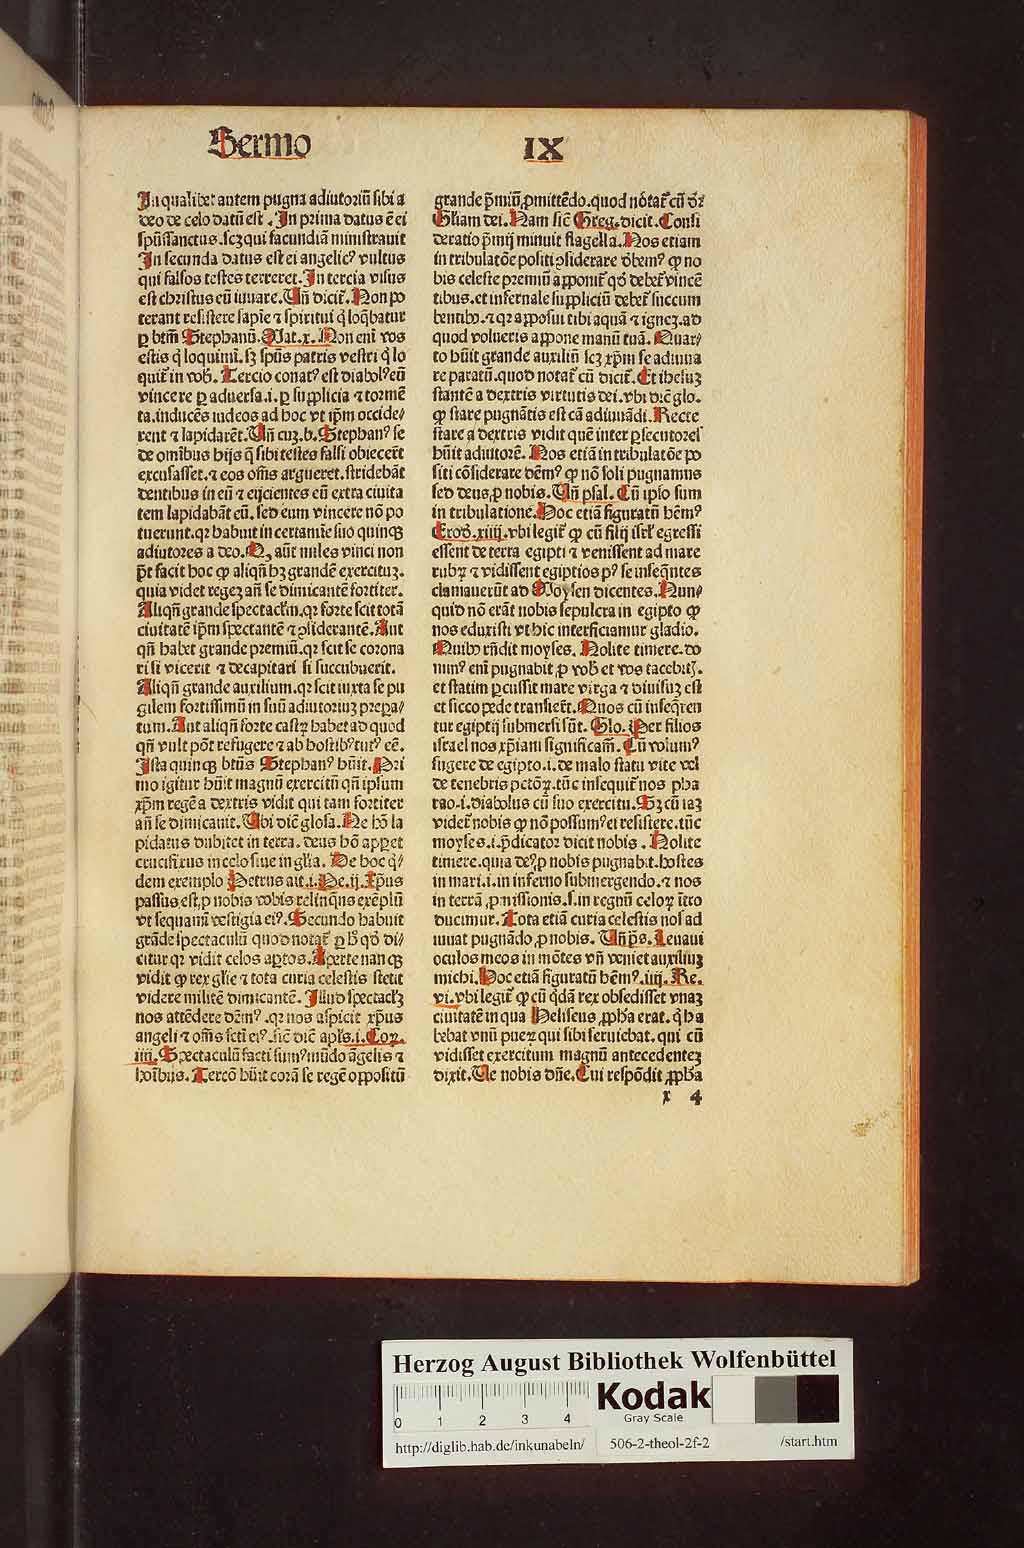 Sermo IX
In qualibet autem pugna adiutoriū sibi a
deo de celo datū est. In prima datus ē ei
spūssanctus. scꝫ qui facundiā ministrauit
In secunda datus est ei angelicꝰ vultus
qui falsos testes terreret. In tercia visus
est christus eū iuuare. Vñ dicit̄. Non po
terant resistere sapīe ⁊ spiritui q̇ loq̄batur
ꝑ btm̄ Stephanū. Mat. x. Non enī vos
estis q̇ loquimī. sꝫ spūs patris vestri q̇ lo
quit̄ in vob̄. Tercio conatꝰ est diabolꝰ eū
vincere ꝑ aduersa .i. ꝑ supplicia ⁊ tormē
ta. inducēs iudeos ad hoc vt ip̄m occide⸗
rent ⁊ lapidarēt. Vñ cuꝫ .b. Stephanꝰ se
de omībus hijs q̄ sibi testes falsi obiecer̄t
excusasset. ⁊ eos om̄s argueret. stridebāt
dentibus in eū ⁊ eijcientes eū extra ciuita
tem lapidabāt eū. sed eum vincere nō po
tuerunt. qꝛ habuit in certamīe suo quinqꝫ
adiutores a deo. N, aūt miles vinci non
p̄t facit hoc ꝙ aliqñ hꝫ grandē exercituꝫ.
quia videt regeꝫ añ se dimicantē fortiter.
Aliqñ grande spectacl̄m. qꝛ forte scit totā
ciuitatē ip̄m spectantē ⁊ ꝯsiderantē. Aut
qñ habet grande premiū. qꝛ scit se corona
ri si vicerit ⁊ decapitari si succubuerit.
Aliqñ grande auxilium. qꝛ scit iuxta se pu
gilem fortissimū in suū adiutoriuꝫ prepa⸗
tum. Aut aliqñ forte castꝝ habet ad quod
qñ vult pōt refugere ⁊ ab hostibꝰ tutꝰ eē.
Ista quinqꝫ btūs Stephanꝰ hūit. Pri
mo igitur hūit magnū exercitū qñ ipsum
xp̄m regē a dextris vidit qui tam fortiter
añ se dimicauit. Ubi dic̄ glosa. Ne hō la
pidatus dubitet in terra. deus hō apꝑet
crucifixus in celo siue in gl̄ia. De hoc q̇⸗
dem exemplo Petrus ait .i. Pe. ij. Xp̄us
passus est ꝓ nobis vobis relinq̄ns exēplū
vt sequamī vestigia eiꝰ. Secundo habuit
grāde spectaculū quod notat̄ ꝑ h̄ qđ di⸗
citur qꝛ vidit celos aꝑtos. Aperte nanqꝫ
vidit ꝙ rex gl̄ie ⁊ tota curia celestis stetit
videre militē dimicantē. Illud spectacl̄ꝫ
nos attēdere dēmꝰ. qꝛ nos aspicit xp̄us
angeli ⁊ om̄s sc̄ti eiꝰ. sic̄ dic̄ apl̄s .i. Coꝝ.
iiij. Spectaculū facti sumꝰ mūdo āgelis ⁊
hoībus. Tercō hūit corā se regē oppositū
grande p̄miū ꝓmittēdo. quod nōtat̄ cū dr̄
Gl̄iam dei. Nam sic̄ Greg. dicit. Consi
deratio p̄mij minuit flagella. Nos etiam
in tribulatōe positi ꝯsiderare debemꝰ ꝙ no
bis celeste premiū apponit̄ qđ debet̄ vincē
tibus. et infernale suppliciū debet̄ succum
bentibꝰ. ⁊ qꝛ apposui tibi aquā ⁊ igneꝫ. ad
quod volueris appone manū tuā. Quar⸗
to hūit grande auxiliū scꝫ xp̄m se adiuua
re paratū. quod notat̄ cū dicit̄. Et ihesuꝫ
stantē a dextris virtutis dei. vbi dic̄ glo.
ꝙ stare pugnātis est cā adiuuādi. Recte
stare a dextris vidit quē inter ꝑsecutores
hūit adiutorē. Nos etiā in tribulatōe po
siti cōsiderare dēmꝰ ꝙ nō soli pugnamus
sed deus ꝓ nobis. Vñ psal. Cū ipso sum
in tribulatione. Hoc etiā figuratū hēmꝰ
Exod. xiiij. vbi legit̄ ꝙ cū filij isrl̄ egressi
essent de terra egipti ⁊ venissent ad mare
rubꝝ ⁊ vidissent egiptios pꝰ se inseq̄ntes
clamauerūt ad Moysen dicentes. Nun⸗
quid nō erāt nobis sepulcra in egipto ꝙ
nos eduxisti vt hic interficiamur gladio.
Quibꝰ rn̄dit moyses. Nolite timere. do
minꝰ enī pugnabit ꝓ vob̄ et vos tacebitꝭ.
et statim ꝑcussit mare virga ⁊ diuisuꝫ est
et sicco pede transier̄t. Quos cū inseq̄ren
tur egiptij submersi sūt. Glo. Per filios
israel nos xp̄iani significam̄. Cū volumꝰ
fugere de egipto .i. de malo statu vite vel
de tenebris pctōꝝ. tūc insequit̄ nos pha
rao .i. diabolus cū suo exercitu. Sꝫ cū iaꝫ
videt̄ nobis ꝙ nō possumꝰ ei resistere. tūc
moyses .i. p̄dicator dicit nobis. Nolite
timere. quia deꝰ ꝓ nobis pugnabit. hostes
in mari .i. in inferno submergendo. ⁊ nos
in terrā ꝓmissionis .s. in regnū celoꝝ ītro
ducimur. Tota etiā curia celestis nos ad
iuuat pugnādo ꝓ nobis. Vñ ps. Leuaui
oculos meos in mōtes vñ veniet auxiliuꝫ
michi. Hoc etiā figuratū hēmꝰ .iiij. Re.
vi. vbi legit̄ ꝙ cū q̇dā rex obsedisset vnaꝫ
ciuitatē in qua Heliseus ꝓph̄a erat. q̇ ha
bebat vnū pueꝝ qui sibi seruiebat. qui cū
vidisset exercitum magnū antecedenteꝫ
dixit. Ue nobis dn̄e. Cui respōdit ꝓph̄a
x 4
Herzog August Bibliothek Wolfenbüttel
0 1 2 3 4
Kodak
Gray Scale
http://diglib.hab.de/inkunabeln/ 506-2-theol-2f-2 /start.htm